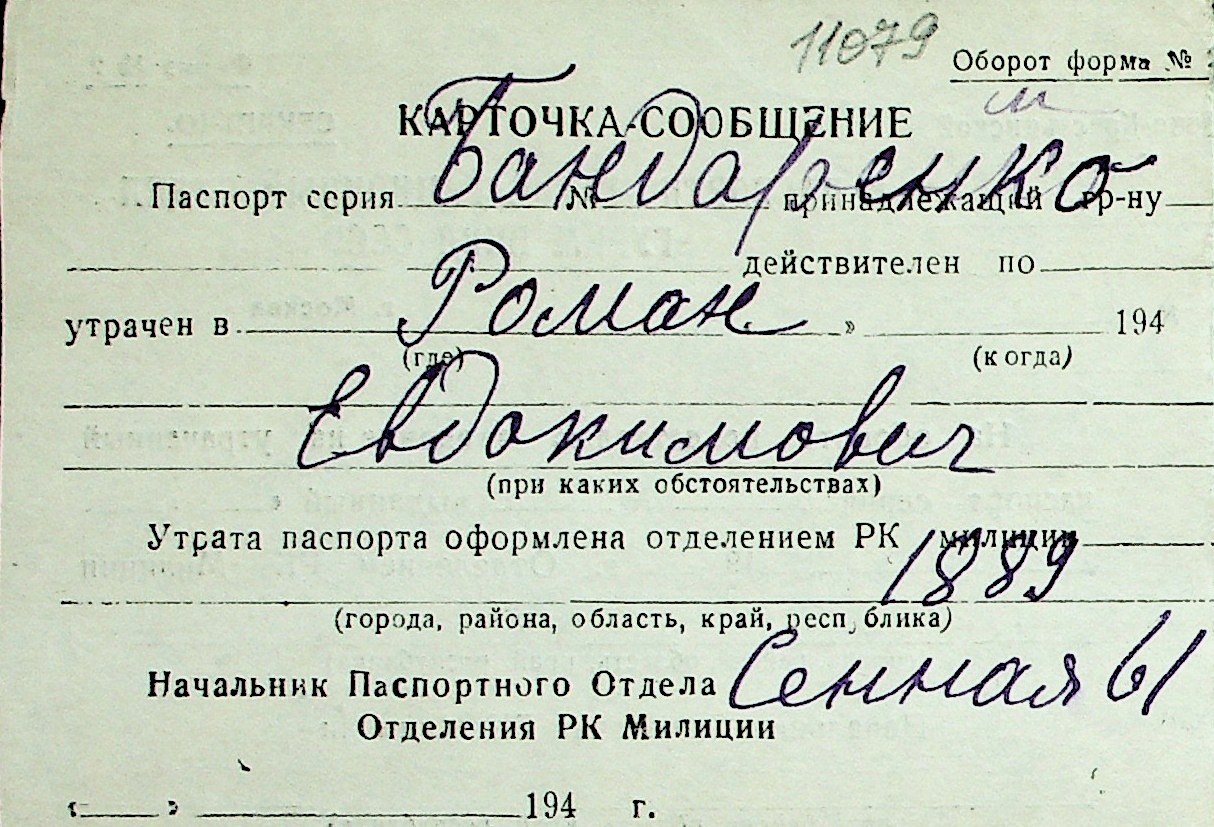 11079
Оборот форма №
КАРТОЧКА-СООБЩЕНИЕ
Бандаренко
Паспорт серия № принадлежащий гр-ну
действителен по
Роман
утрачен в » 194
(где) (когда)
Евдокимович
(при каких обстоятельствах)
Утрата паспорта оформлена отделением РК милиции
1889
(города, района, область, край, республика)
Начальник Паспортного Отдела Сенная 61
Отделения РК Милиции
« » 194 г.